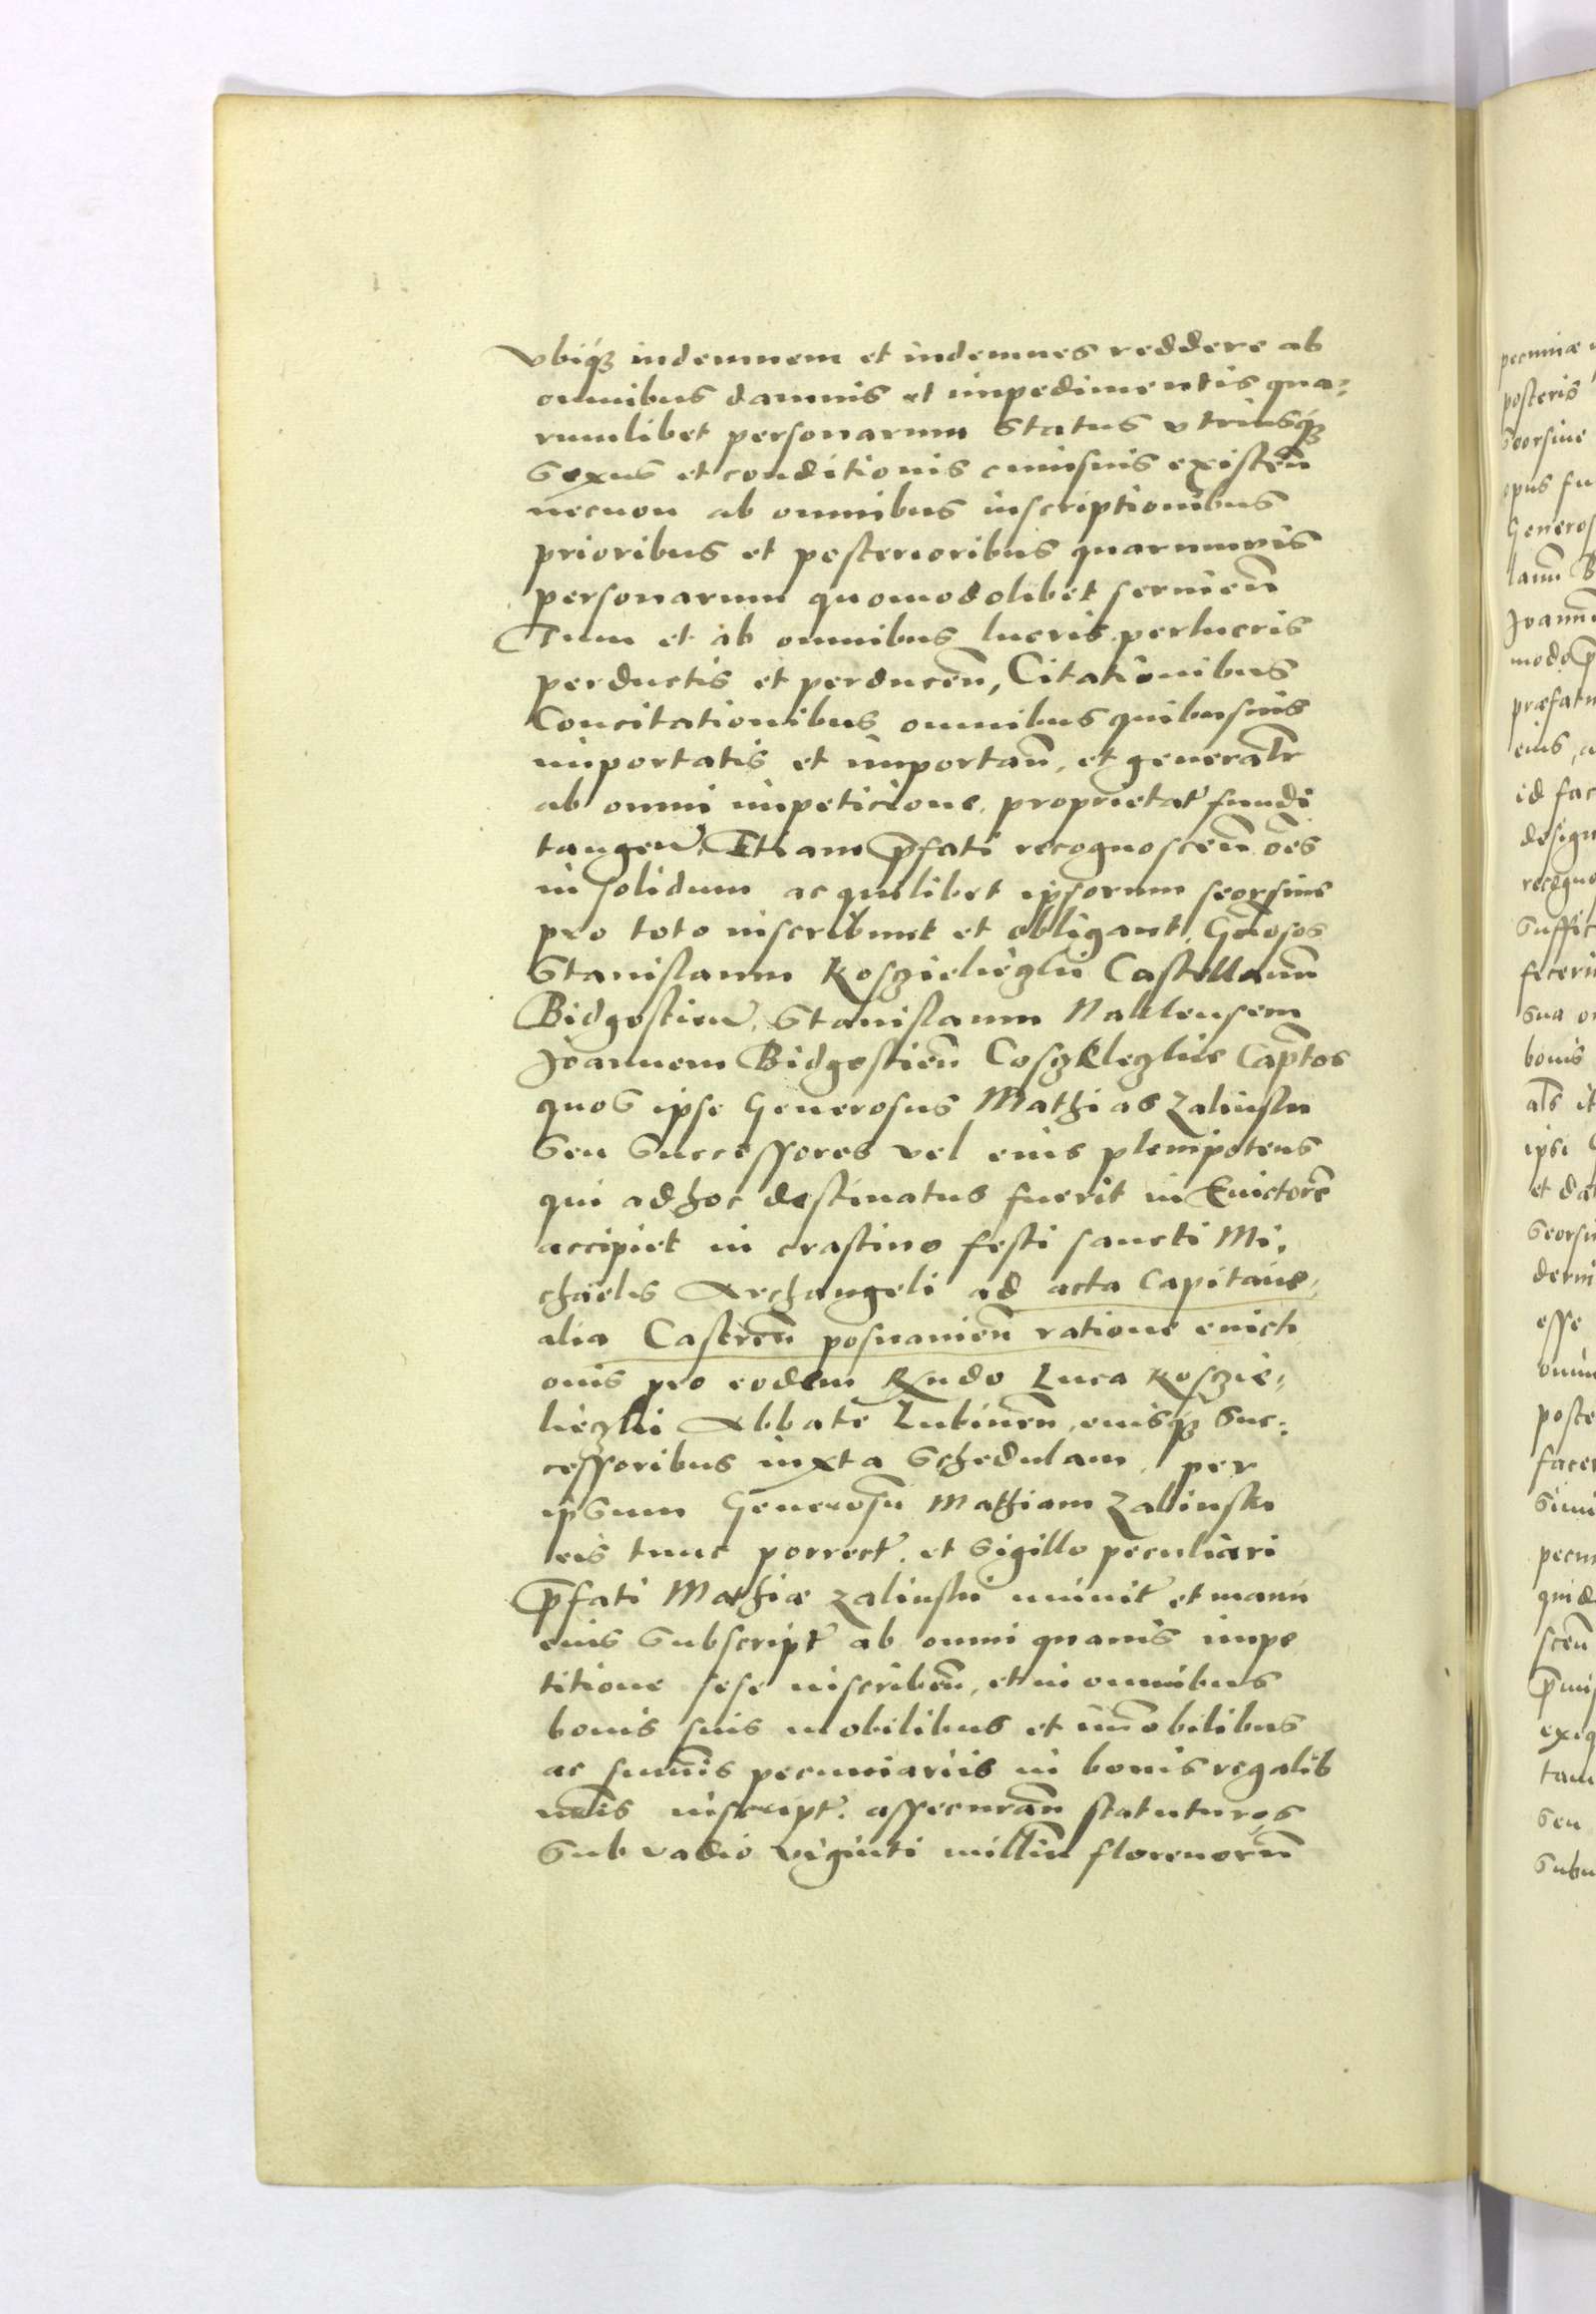 vbiqȝ indemnem et indemnes reddere ab
omnibus damnis et impedimentis qua:
rumlibet personarum status vtriusqȝ
sexus et conditionis cuiusuis existen̄
necnon ab omnibus inscriptionibus
prioribus et posterioribus quarumvis
personarum quomodolibet seruien̄
Tum et ab omnibus lucris perlucris
perductis et perducen̄, Citationibus
Concitationibus omnibus quibusuis
importatis et importan̄, et generaltr̄
ab omni impeticione, proprietat' fundi
tangen̄. Etiam p̄fati recognoscen̄ oēs
in solidum ac quilibet ipsorum seorsiue
pro toto inscribunt et obligant, Gn̄osos
Stanislaum Koszielieczki Castellanū
Bidgostien̄, Stanislaum Naklensem
Joannem Bidgostien̄ Coszkleczkie Capn̄tos
quos ipse Generosus Mathias Zalinski
seu successores vel eius plenipotens
qui ad hoc destinatus fuerit in Euictorē
accipiet in crastino festi sancti Mi,
chaelis Archangeli ad acta Capitane,
alia Castren̄ posnanien̄ ratione euicti
onis pro eodem Rndo Luca Koszie,
lieczki Abbate Lubinen̄, eiusqȝ suc:
cessoribus iuxta schedulam, per
ipsum Generosū Mathiam Zalinski
eis tunc porrect', et sigillo peculiari
p̄fati Mathiæ Zalinski munit' et manu
eius subscript' ab omni quauis impe
titione sese inscriben̄, et in omnibus
bonis suis mobilibus et im̄obilibus
ac sum̄is pecuniariis in bonis regalib
inscript'. assecuran̄ statuturos
Sub vadio viginti millm̄ florenorū

pecuniæ
posteris
seorsiue
opus fu
Generos
Joann
modo p̄
præfat
eius, a
id fac
design
recogno
suffic
fecerin
sua o
bonis
als it
ipsi
et da
seorsi
esse
poste
facer
simi
pecu
quid
scen̄
p̄mis
exeq
tam
seu